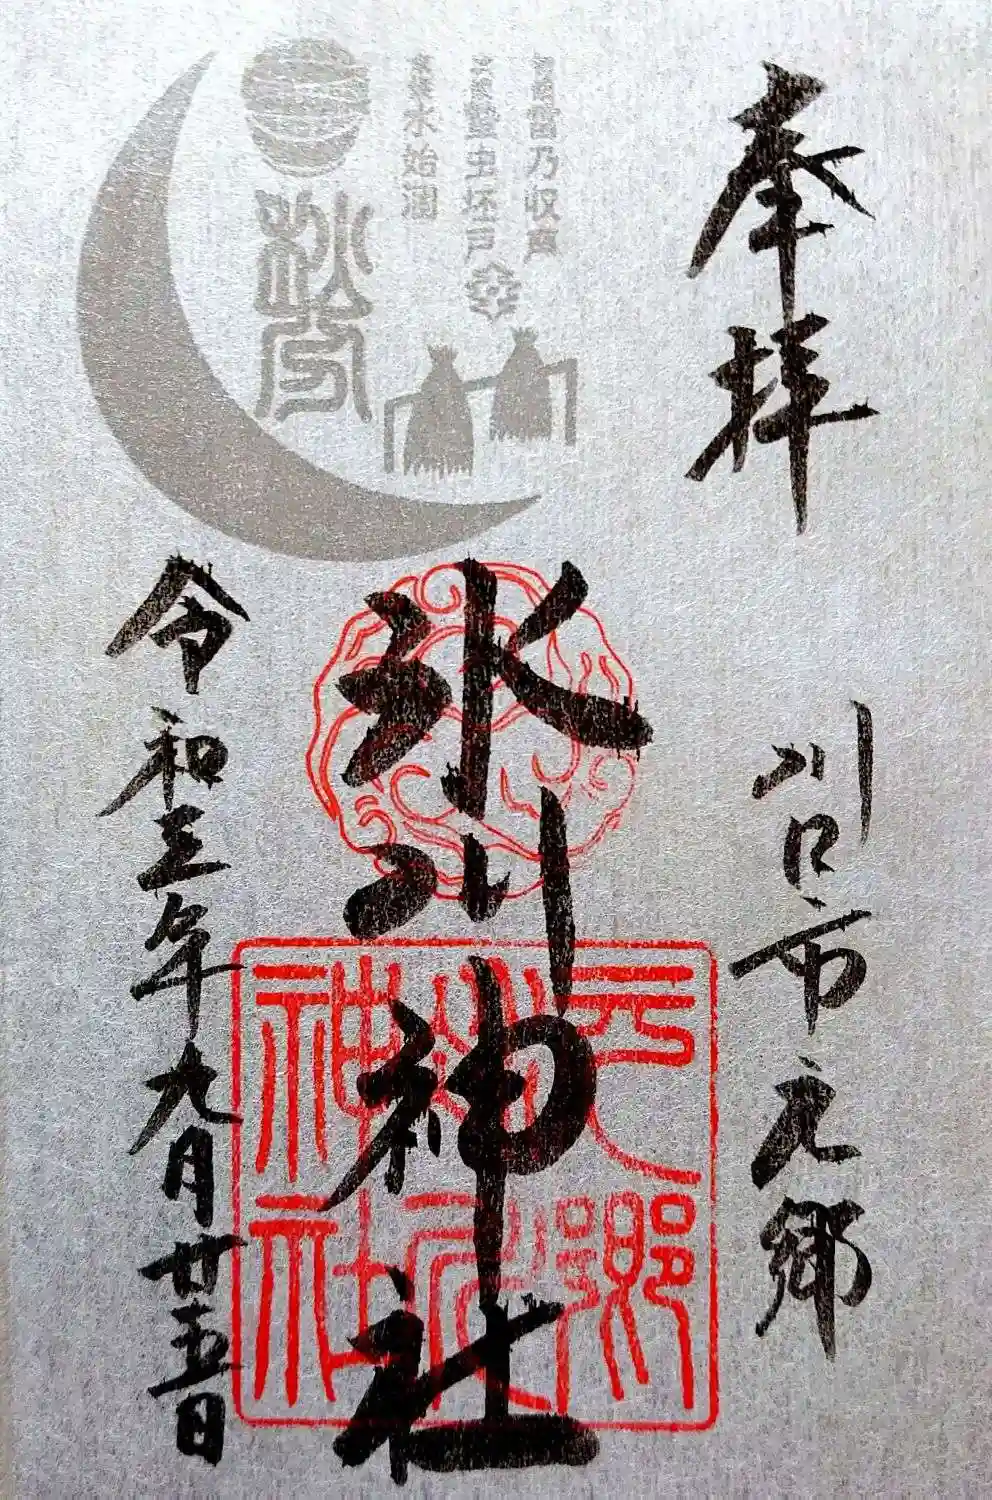 奉拝
川口市元郷
雷乃収声
蟄虫坏戸
水始涸
秋分
氷川神社
元郷
氷川
神社
令和三年九月廿五日